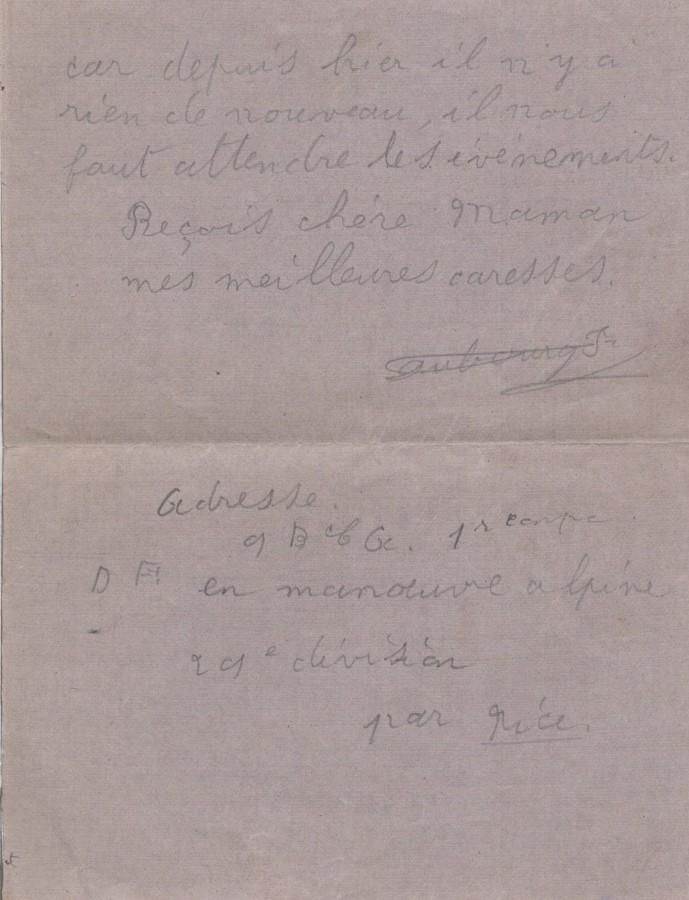 car depuis hier il n'y a
rien de nouveau, il nous
faut attendre les événements.
Reçois chére Maman
mes meilleures caresses.
aubourg Fr
Adresse.
9 B ch A. 1r compe
D F en manœuvre alpine
29e division
par Nice.